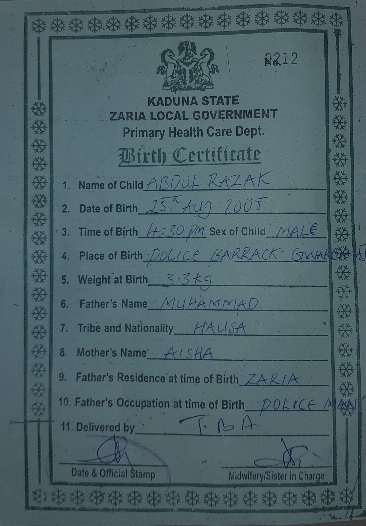 0212
KADUNA STATE
ZARIA LOCAL GOVERNMENT
Primary Health Care Dept.
Birth Certificate
1. Name of Child ABDUL RAZAK
2. Date of Birth 25th Aug 2005
3. Time of Birth 4:30 pm Sex of Child MALE
4. Place of Birth POLICE BARRACK
5. Weight at Birth 3-3kg
6. Father's Name MUHAMMAD
7. Tribe and Nationality HAUSA
8. Mother's Name AISHA
9. Father's Residence at time of Birth ZARIA
10. Father's Occupation at time of Birth POLICE MAN
11. Delivered by T.B.A
Date & Official Stamp Midwifery/Sister in Charge